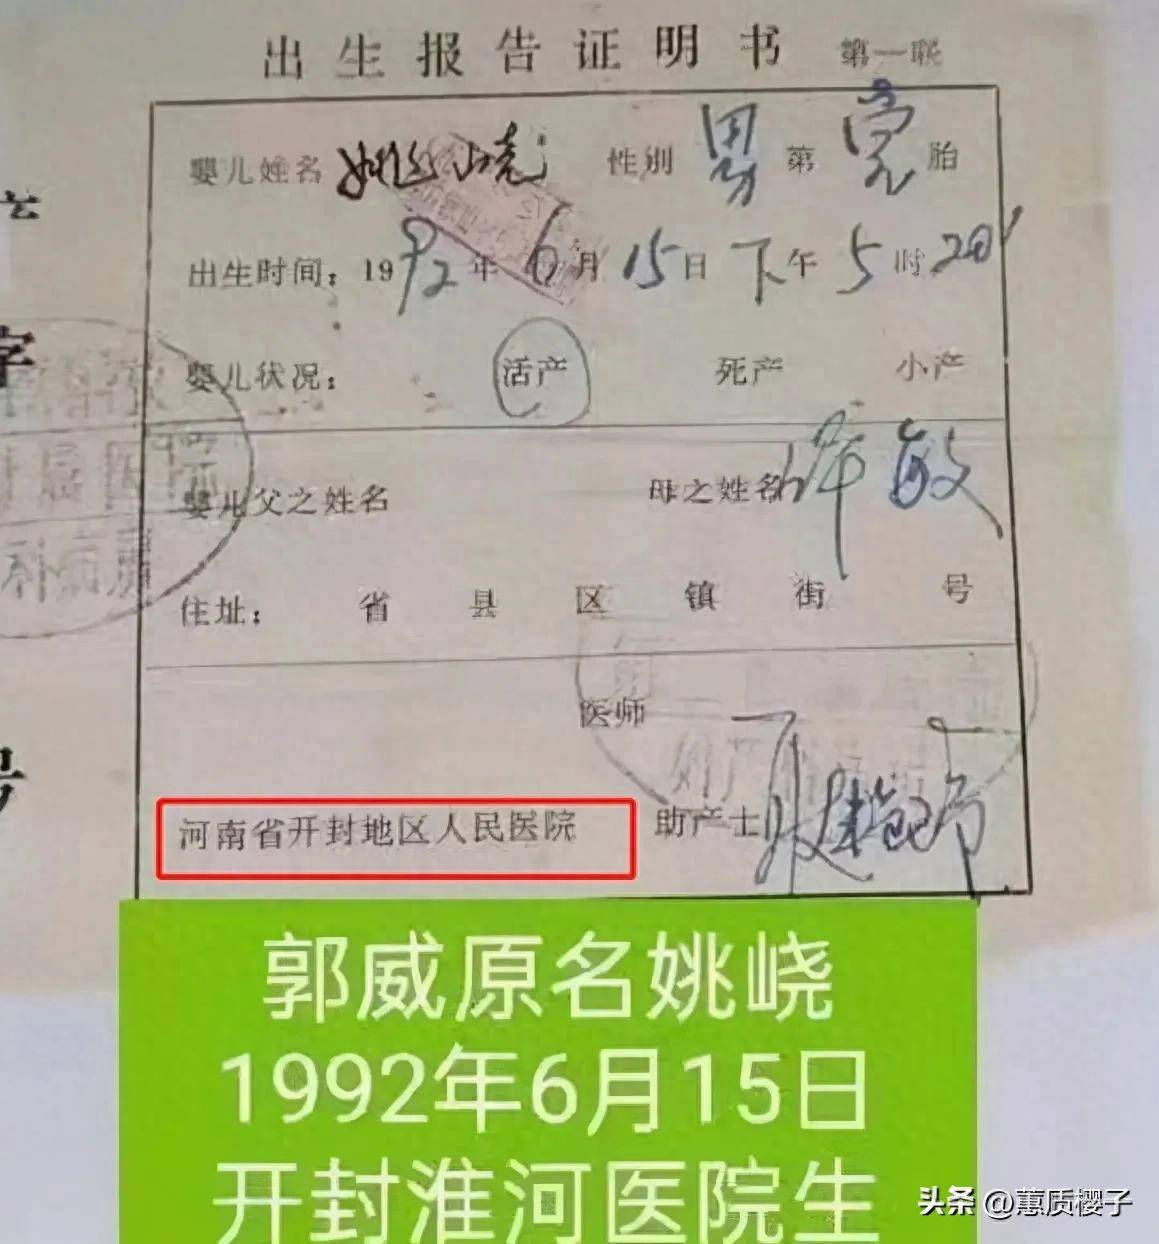 出生报告证明书 第一联
婴儿姓名 姚峣 性别 男 第 壹 胎
出生时间：1992年6月15日下午5时20'
婴儿状况： 活产 死产 小产
婴儿父之姓名 母之姓名 许敏
住址： 省 县 区 镇 街 号
医师
河南省开封地区人民医院 助产士
字
号
郭威原名姚峣
1992年6月15日
开封淮河医院生
头条 @蕙质樱子